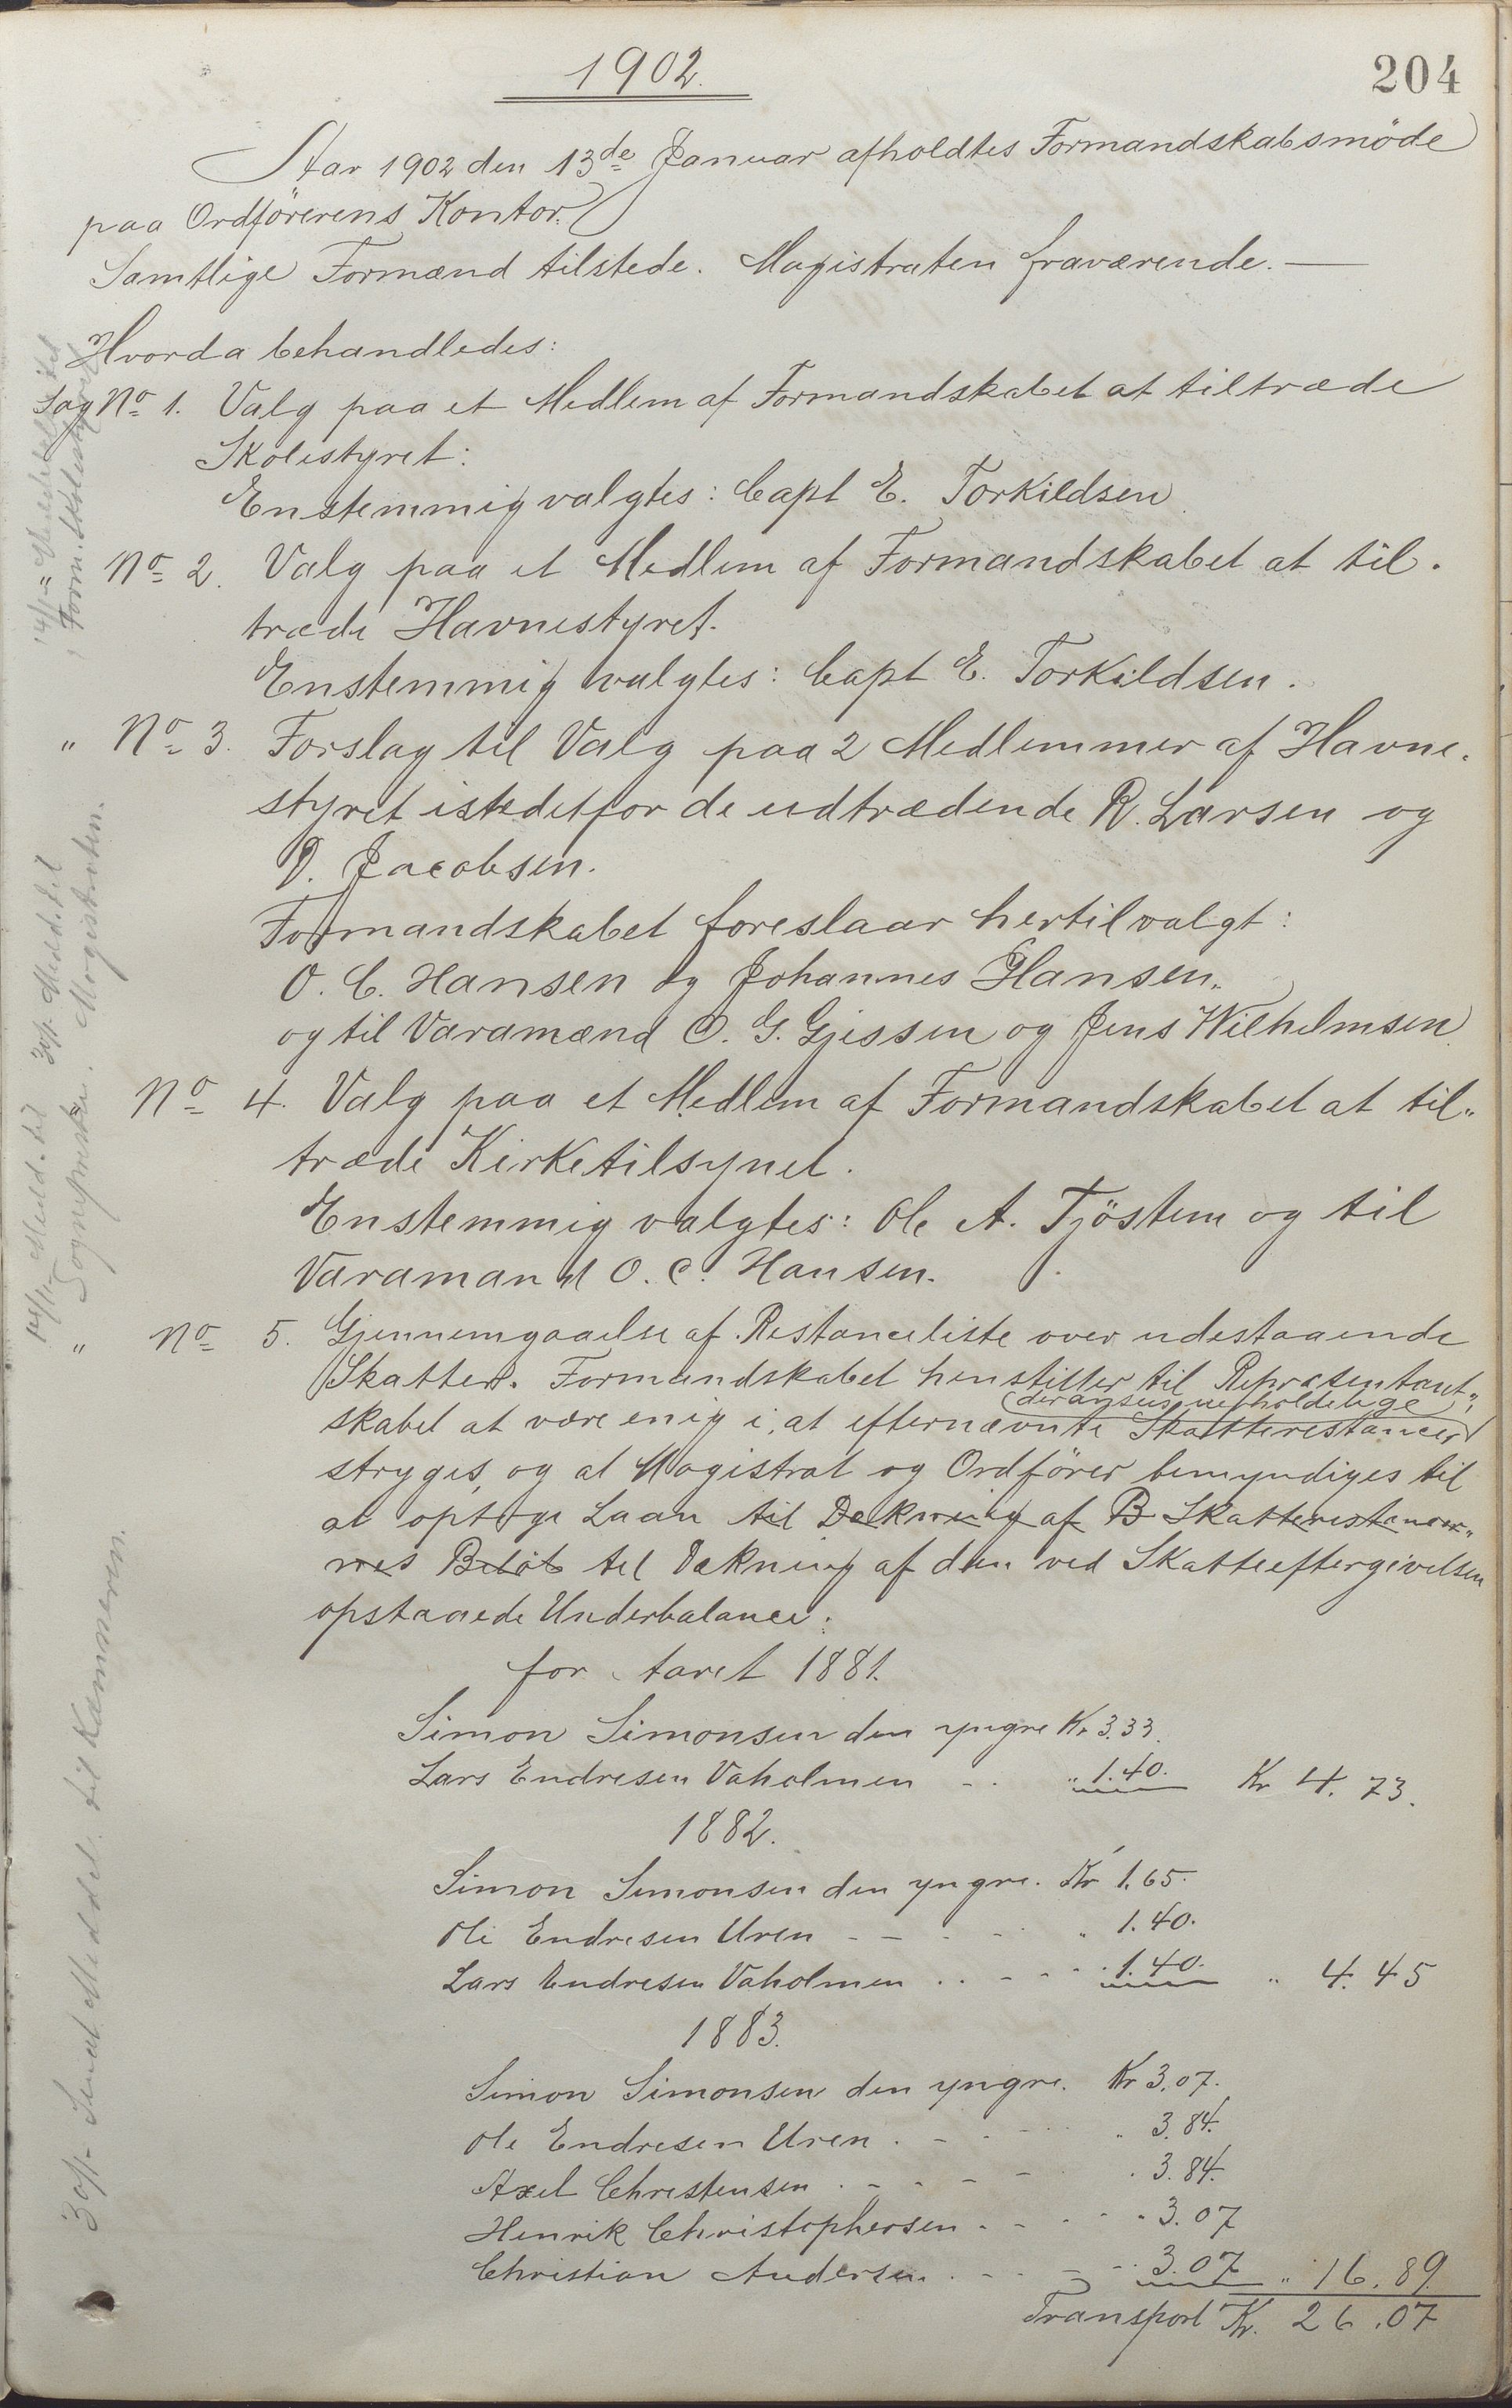 1902.
204
Aar 1902 den 13de Januar afholdtes Formandskabsmöde
paa Ordförerens Kontor.
Samtlige Formænd tilstede. Magistraten fraværende. —
Hvorda behandledes:
Sag No 1. Valg paa et Medlem af Formandskabet at tiltræde
Skolestyret:
Enstemmig valgtes: Capt E. Torkildsen
No 2. Valg paa et Medlem af Formandskabet at til-
træde Havnestyret.
Enstemmig valgtes: Capt E. Torkildsen.
" No 3. Forslag til Valg paa 2 Medlemmer af Havne-
styret istedetfor de udtrædende R. Larsen og
D. Jacobsen.
Formandskabet foreslaar hertil valgt:
O. C. Hansen og Johannes Hansen,
og til Varamænd O. G. Gjessen og Jens Wilhelmsen
No 4. Valg paa et Medlem af Formandskabet at til-
træde Kirketilsynet.
Enstemmig valgtes: Ole A. Tjöstem og til
Varamand O. C. Hansen.
" No 5. Gjennemgaaelse af Restanceliste over udestaaende
Skatter. Formandskabet henstiller til Repræsentant-
der ansees uerholdelige
skabet at være enig i, at efternævnte Skatterestancer
stryges, og at Magistrat og Ordförer bemyndiges til
at optage Laan til Dækning af B Skatterestancer-
nes Belöb til Dækning af den ved Skatteeftergivelsen
opstaaede Underbalance:
for Aaret 1881.
Simon Simonsen den yngre Kr 3.33.
Lars Endresen Vaholmen - - " 1.40. Kr 4.73.
1882.
Simon Simonsen den yngre. Kr 1.65.
Ole Endresen Uren - - - - " 1.40.
Lars Endresen Vaholmen . . - - - 1.40. " 4.45
1883.
Simon Simonsen den yngre. Kr 3.07.
Ole Endresen Uren . - - - " 3.84.
Axel Christensen . - - - - . 3.84.
Henrik Christophersen - - - - " 3.07
Christian Andersen . - - - - 3.07 " 16.89.
Transport Kr. 26.07
14/1 - Meddelt til
Form. Skolestyret
14/1 Medd. til
Sognepresten.
30/1. Medd. til
Magistraten.
30/1. Sendt Meddel. til Kæmneren.